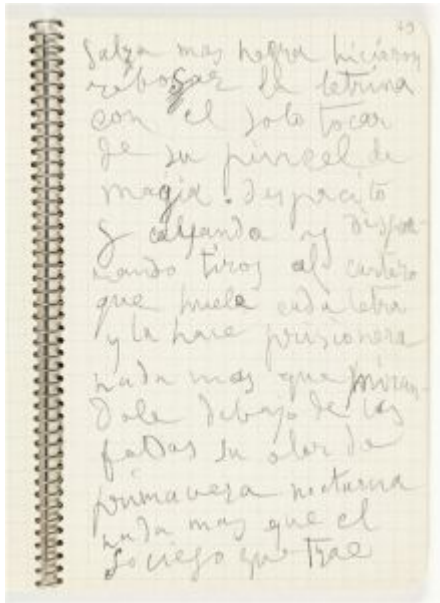 salga mas negra hicieron
rebosar la letrina
con el solo tocar
de su pincel de
magia. despacito
y callando y dispa-
rando tiros al cartero
que huele cada letra
y la hace prisionera
nada mas que miran-
dole debajo de las
faldas su olor de
primavera nocturna
nada mas que el
sociego que trae